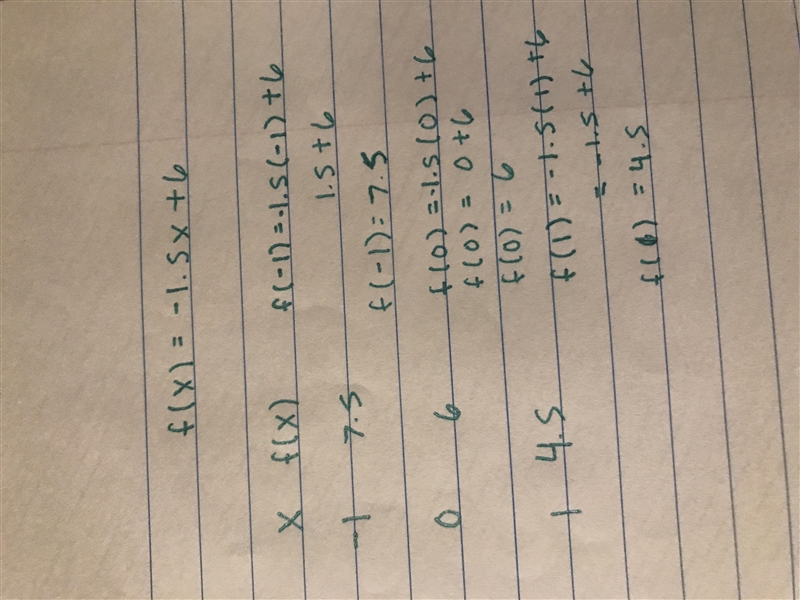 f(x) = -1.5x + 6
x f(x) f(-1) = -1.5(-1) + 6
1.5 + 6
-1 7.5 f(-1) = 7.5
0 6 f(0) = -1.5(0) + 6
f(0) = 0 + 6
f(0) = 6
1 4.5 f(1) = -1.5(1) + 6
= -1.5 + 6
f(1) = 4.5